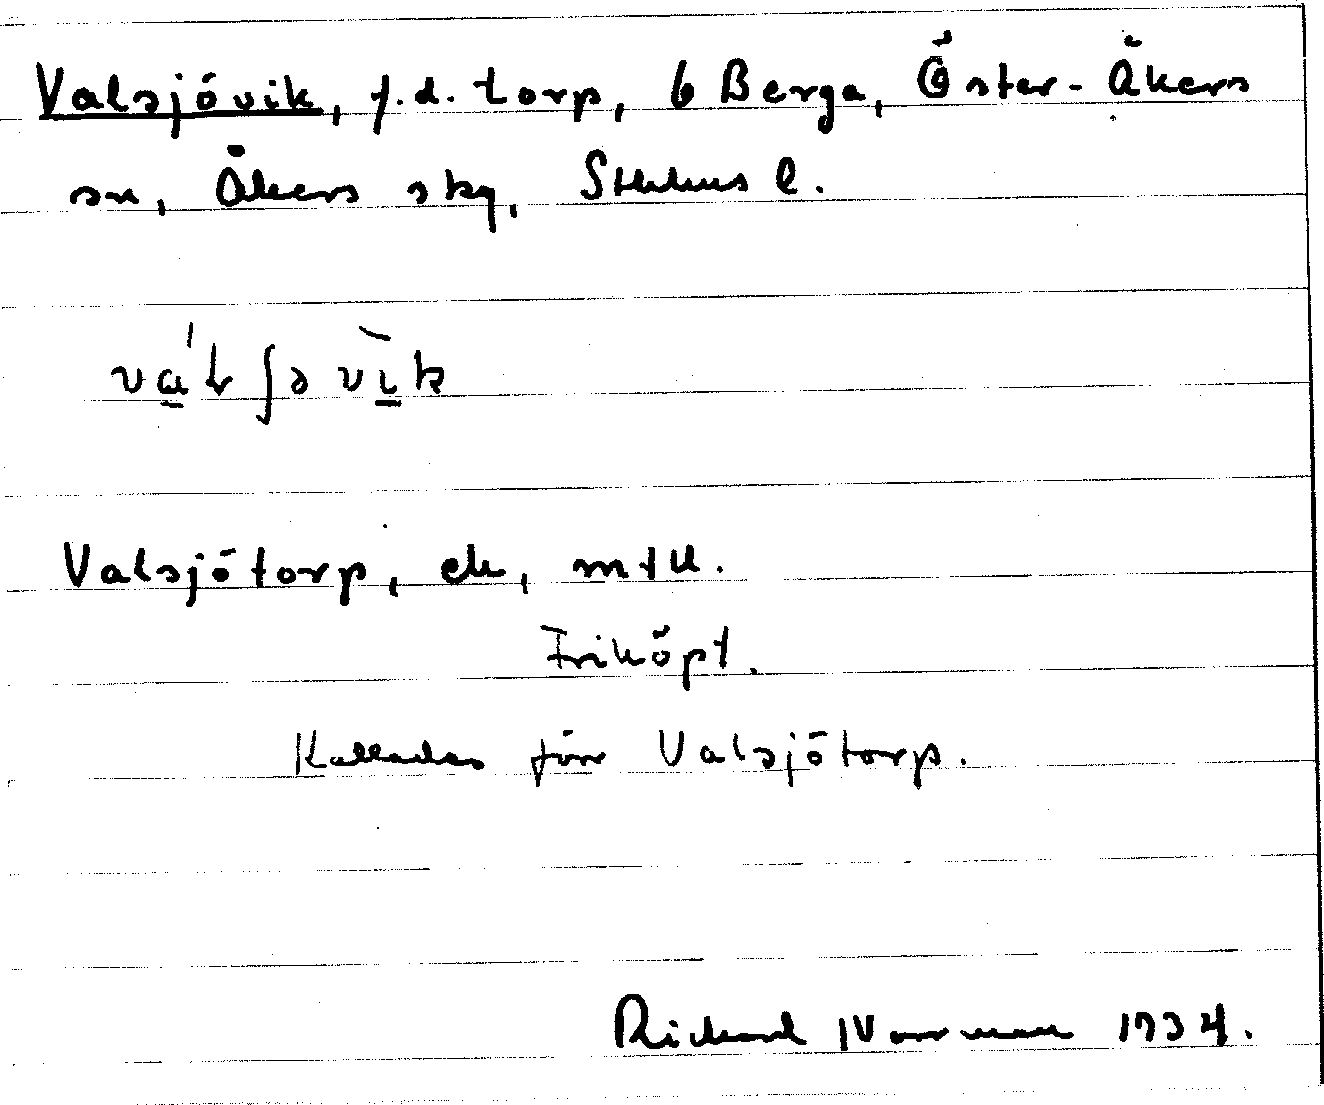 Valsjövik, f.d. torp, b Berga, Öster-Åkers
sn, Åkers skg, Sthlms l.
Valsjötorp, ek,
Friköpt.
Kallades förr Valsjötorp.
Richard 1934.